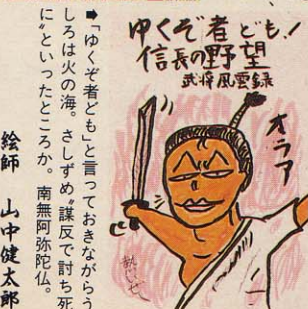 ゆくぞ者ども!
信長の野望
武将風雲録
オラア
➡「ゆくぞ者ども」と言っておきながらう
しろは火の海。さしずめ“謀反で討ち死
に”といったところか。南無阿弥陀仏。
絵師 山中健太郎